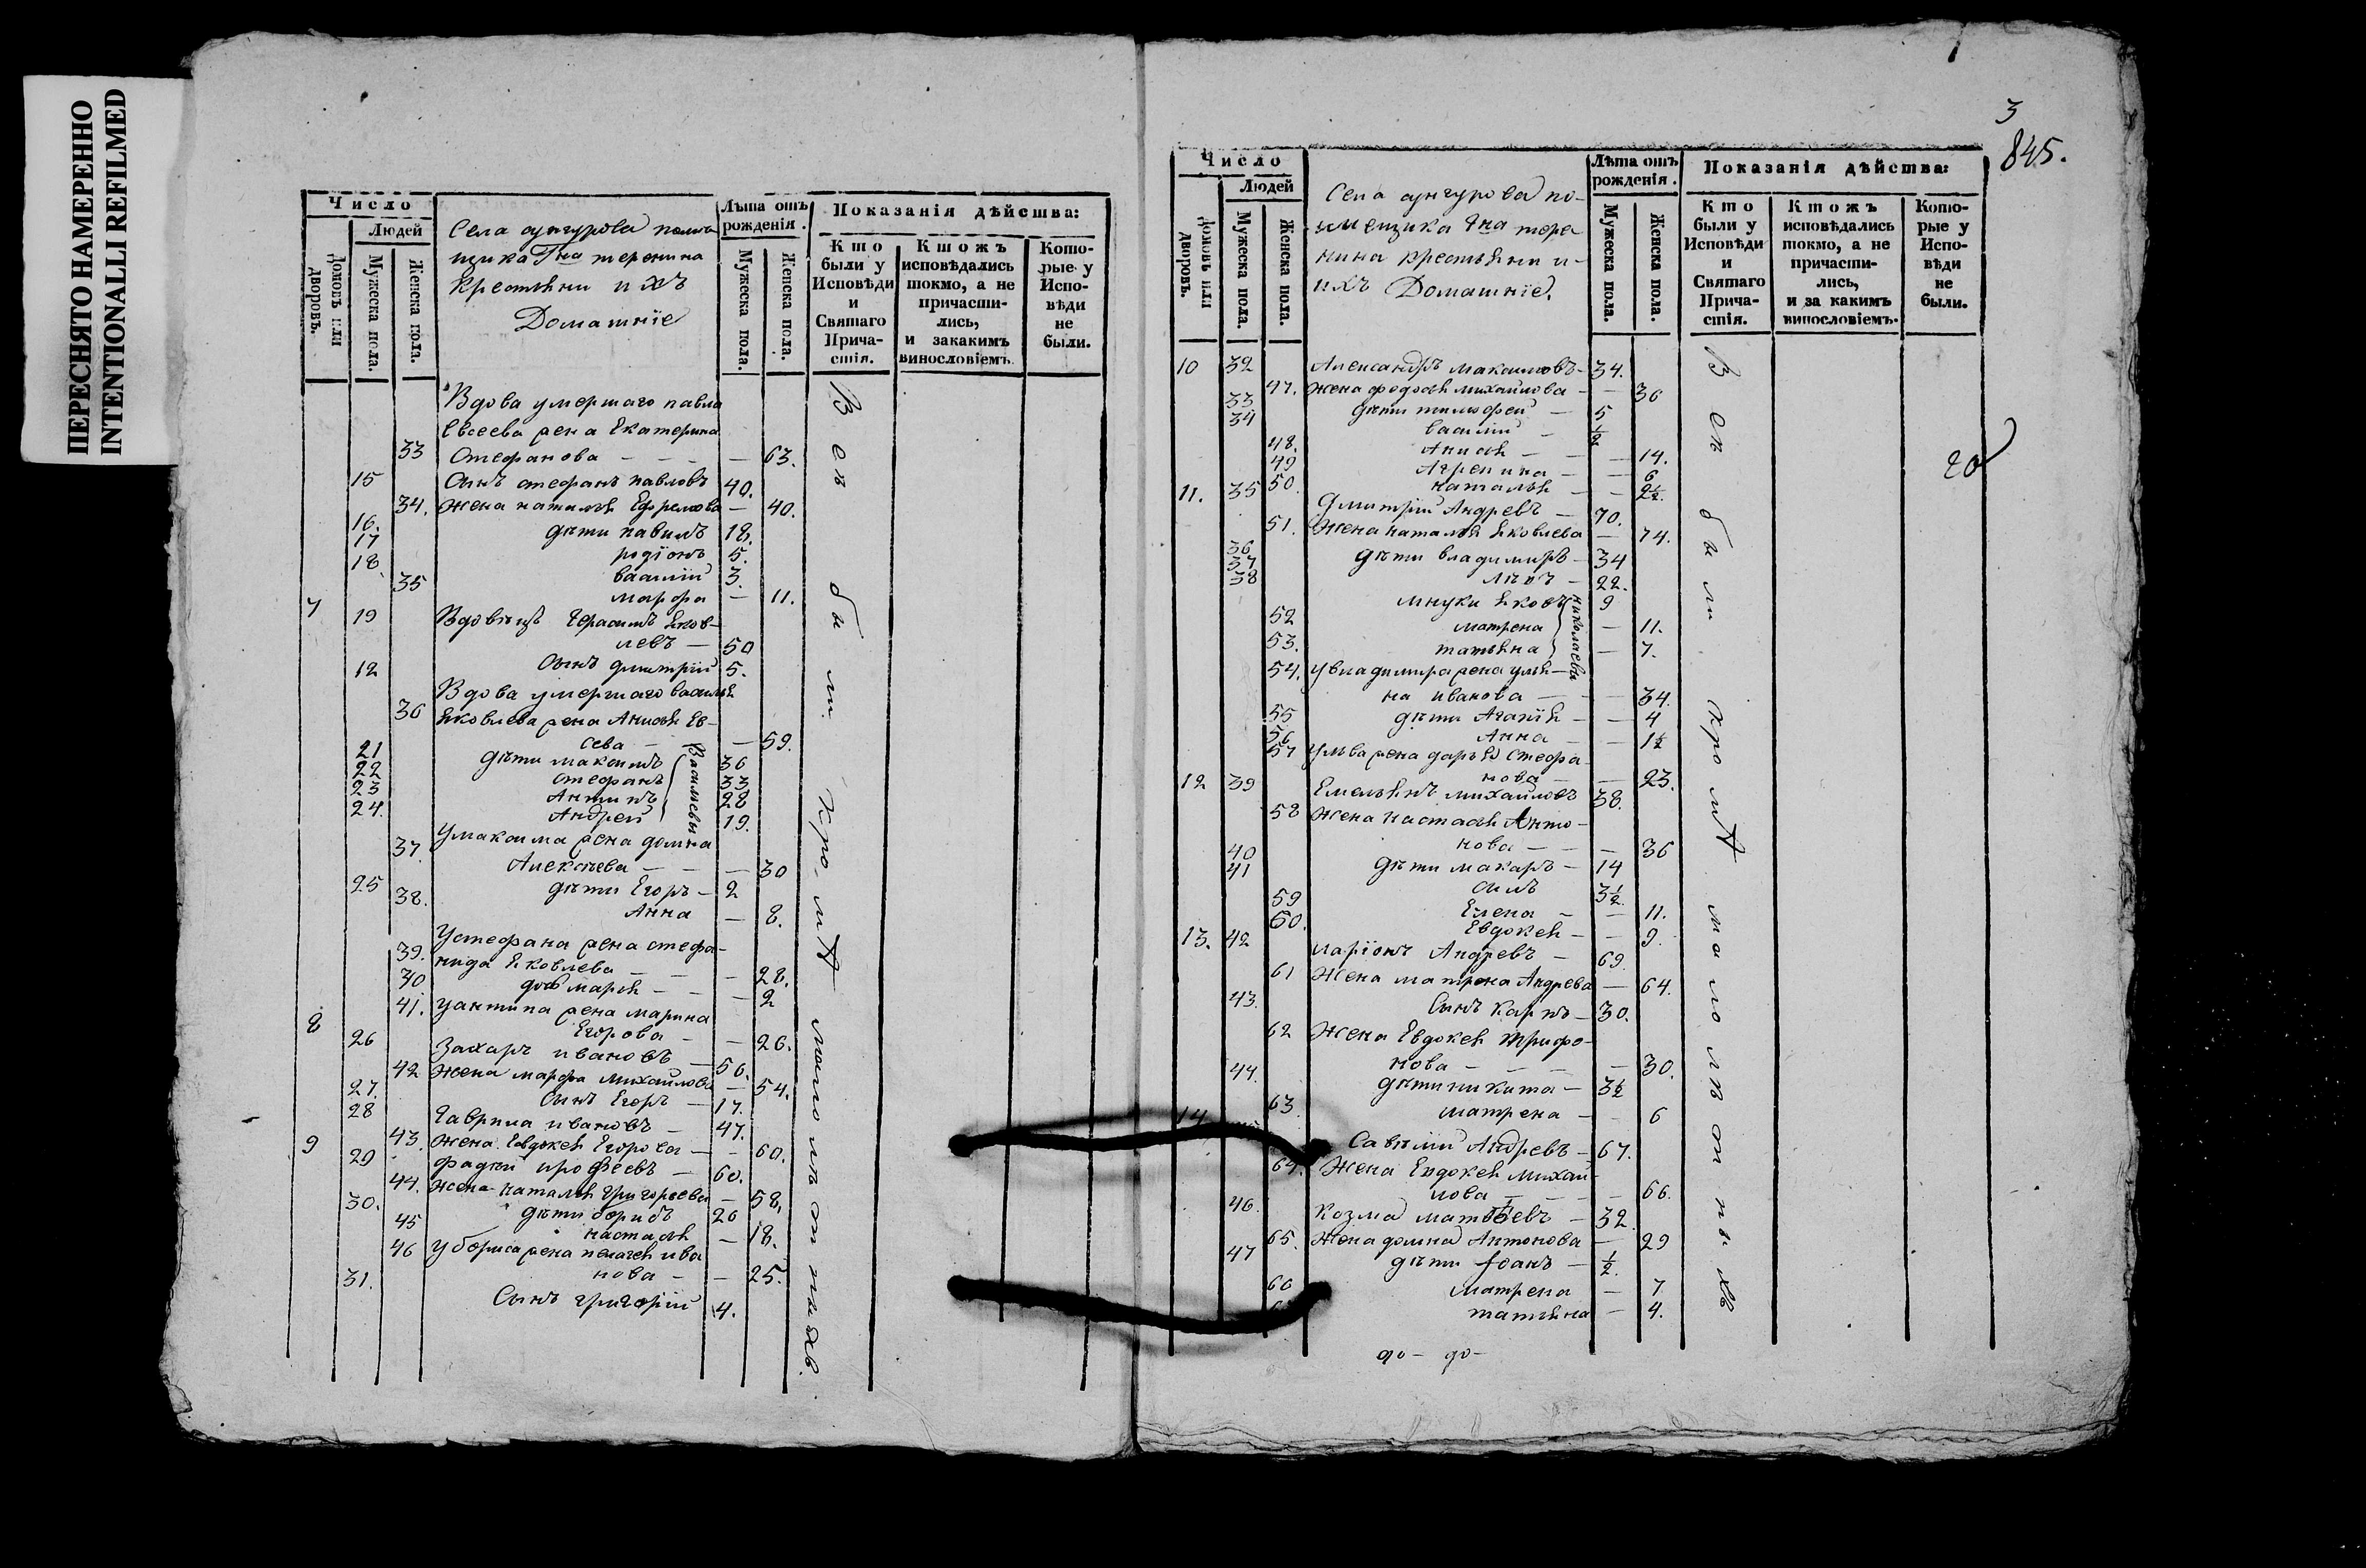 ПЕРЕСНЯТО НАМЕРЕННО
INTENTIONALLI REFILMED
Число
Людей
Домовъ или дворовъ.
Мужеска пола.
Женска пола.
Села аунгурова помѣ-
щика Гна теренина
крестьяни и ихъ
Домашніе
Лѣта отъ рожденія.
Мужеска пола.
Женска пола.
Показанія дѣйства:
Кто были у Исповѣди и Святаго Прича-стія.
Ктожъ исповѣдались токмо, а не причасти-лись, и закакимъ винословіемъ.
Кото-рые у Испо-вѣди не были.
Вдова умершаго павла
Евсеева жена Екатерина
33 Стефанова — 63.
15 Сынъ стефанъ павловъ 40.
34. Жена наталья Ефремова — 40.
16. дѣти павилъ 18.
17 родіонъ 5.
18 василій 3.
35 марфа — 11.
7 19 Вдовецъ Герасимъ яков-
левъ — 50
Сынъ дмитрій 5.
Вдова умершаго василья
36 яковлева жена Анисья Ев-
сева — 59.
21 дѣти максимъ 36
22 стефанъ 33
23 Антипъ 28
24. Андрей 19.
Васильевы
37. у максима жена домна
Алексѣева — 30
25 дѣти Егоръ — 2
38. Анна — 8.
у стефана жена стефа-
39. нида яковлева — 28.
дочь марья — 2
41. у антипа жена марина
Егорова — 26.
8 26 Захаръ ивановъ — 56.
42 жена марфа михайлова — 54.
27. Сынъ Егоръ — 17.
28 Гаврила ивановъ — 47.
43. жена Евдокея Егорова — 60.
9 29 Фадѣй ерофеевъ — 60.
44. жена наталья григорьева — 58.
30. дѣти борисъ 26
45 настасья — 18.
46 у бориса жена пелагея ива
нова — 25.
31. Сынъ григорій 4.
Вси были
кромѣ малолѣтныхъ.
3
845.
Число
Людей
Домовъ или дворовъ.
Мужеска пола.
Женска пола.
Села аунгурова по-
мѣщика Гна тере
нина крестьяни и-
ихъ Домашніе.
Лѣта отъ рожденія.
Мужеска пола.
Женска пола.
Показанія дѣйства:
Кто были у Исповѣди и Святаго Прича-стія.
Ктожъ исповѣдались токмо, а не причасти-лись, и за какимъ винословіемъ.
Кото-рые у Испо-вѣди не были.
10 32 Александръ максимовъ — 34.
47. Жена федосья михайлова — 36
33 дѣти тимофей — 5
34 василій — ½
48. Анисья — 14.
49 Агрепина — 6
50. наталья — 2½.
11. 35 Дмитрій Андревъ — 70.
51. Жена наталья яковлева — 74.
36 дѣти владимиръ — 34
37 левъ — 22.
38 мнуки яковъ 9
52 матрена — 11.
53. татьяна — 7.
николаевы
54. у владимира жена улья-
на иванова — 34.
55 дѣти Агапія — 4
56 Анна — 1½
57 у льва жена дарья стефа
нова — 23.
12 39 Емельянъ михайловъ 38.
58 Жена настасья Анто-
нова — 36
40 дѣти макаръ — 14
41 3½.
59 Елена — 11.
60. Евдокея — 9.
13. 42 ларіонъ Андревъ — 69.
61 Жена матрена Андрева — 64.
43. Сынъ карпъ — 30.
62 Жена Евдокея трифо-
нова — 30.
44. дѣти никита — 3½
63. матрена — 6
14 Савелій Андревъ — 67.
64. Жена Евдокея михай-
лова — 66.
46. Козма матвѣевъ — 32.
65. Жена домна Антонова — 29
47 дѣти іоанъ — ½.
матрена — 7
татьяна — 4.
до — до —
Вси были кромѣ малолѣтныхъ